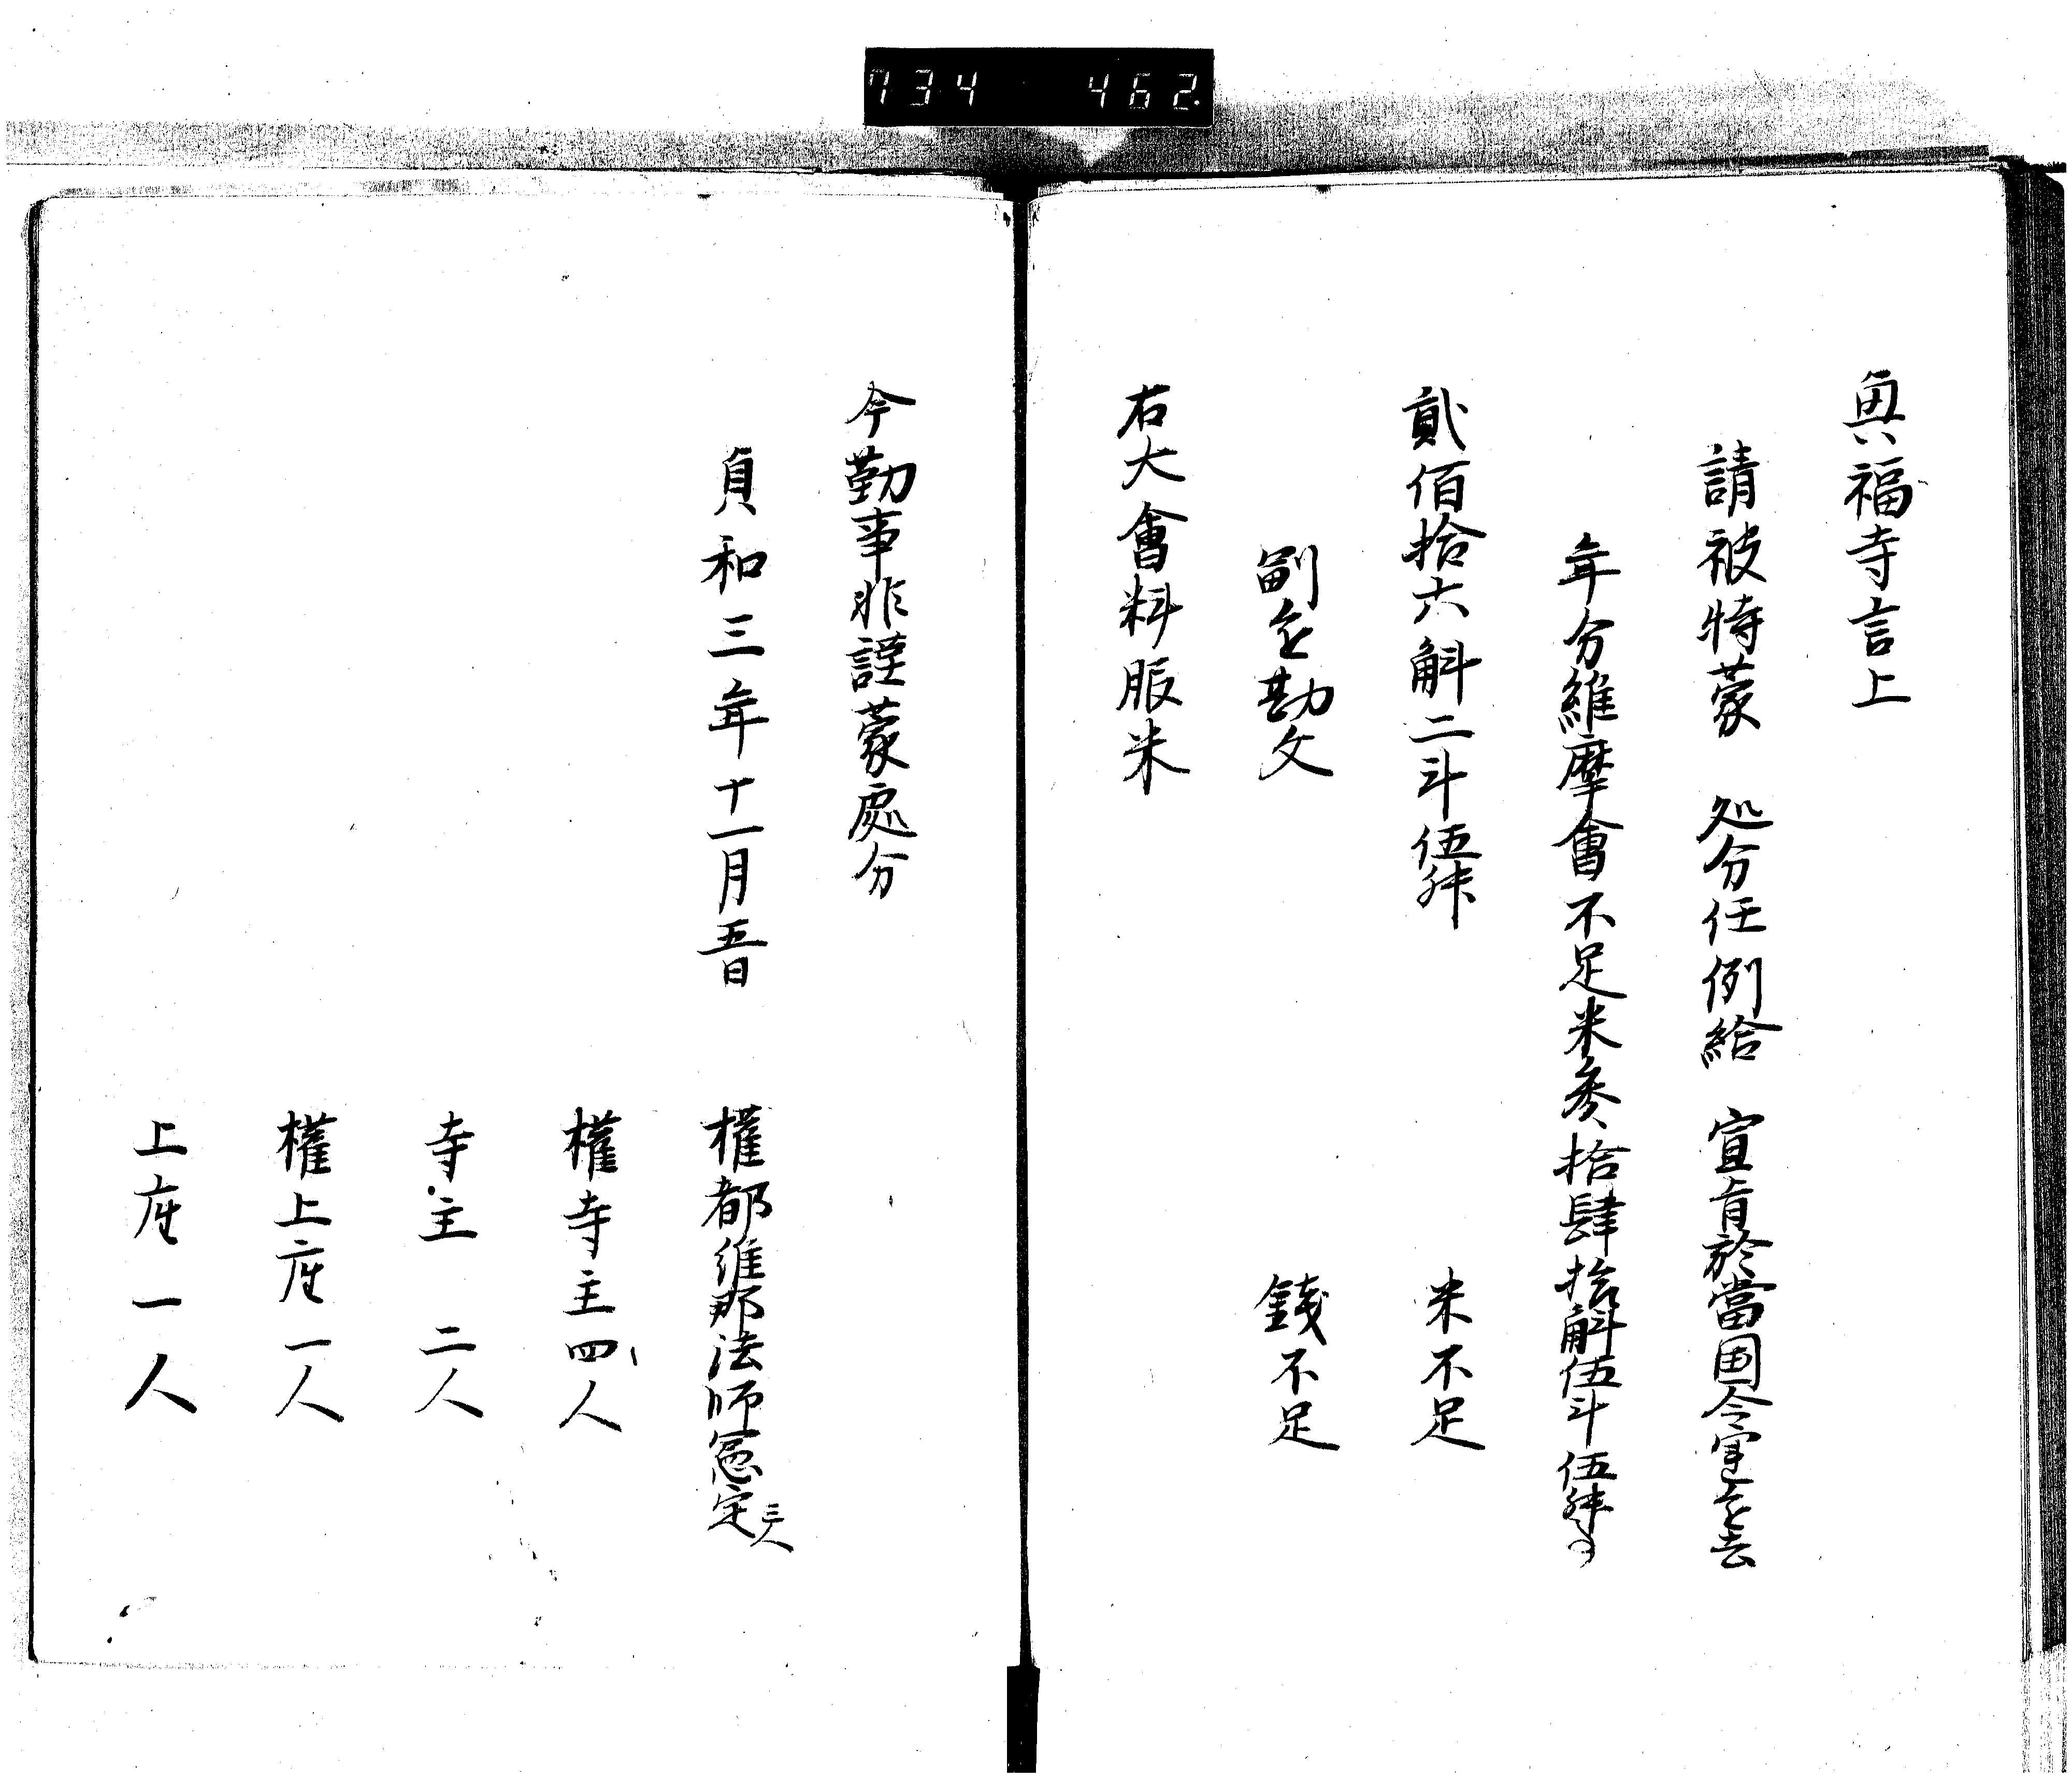 734 462
興福寺言上
請被特蒙 処分任例給 宣旨於當国令運気去
年分維摩會不足米参拾肆拾斛伍斗伍舛
貳佰拾六斛二斗伍舛 米不足
副進勘文 錢不足
右大會料服米
今勤事非謹蒙處分
貞和三年十一月五日 權都維那法師冨定三人
權寺主四人
寺主 二人
權上座一人
上座一人